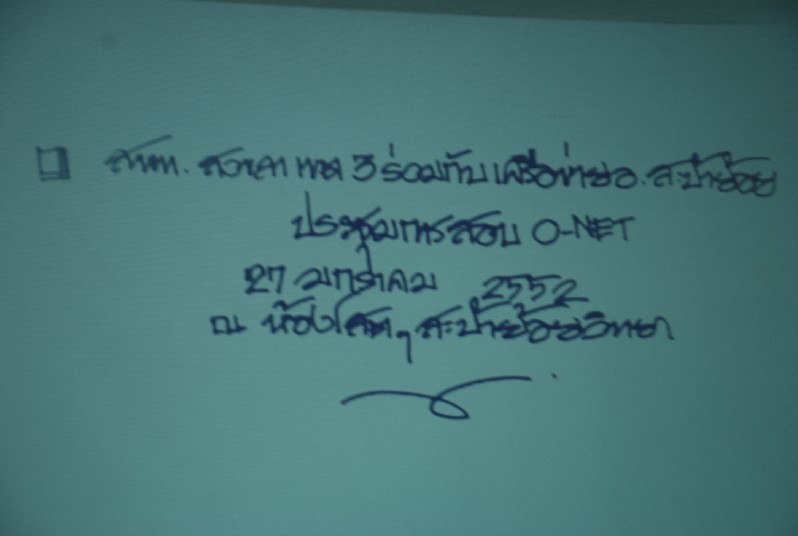 สพท. สงขลา เขต 3 ร่วมกับเครือข่าย อ. สะบ้าย้อย
ประชุมการสอบ O-NET
27 มกราคม 2552
ณ ห้องโสตฯ สะบ้าย้อยวิทยา